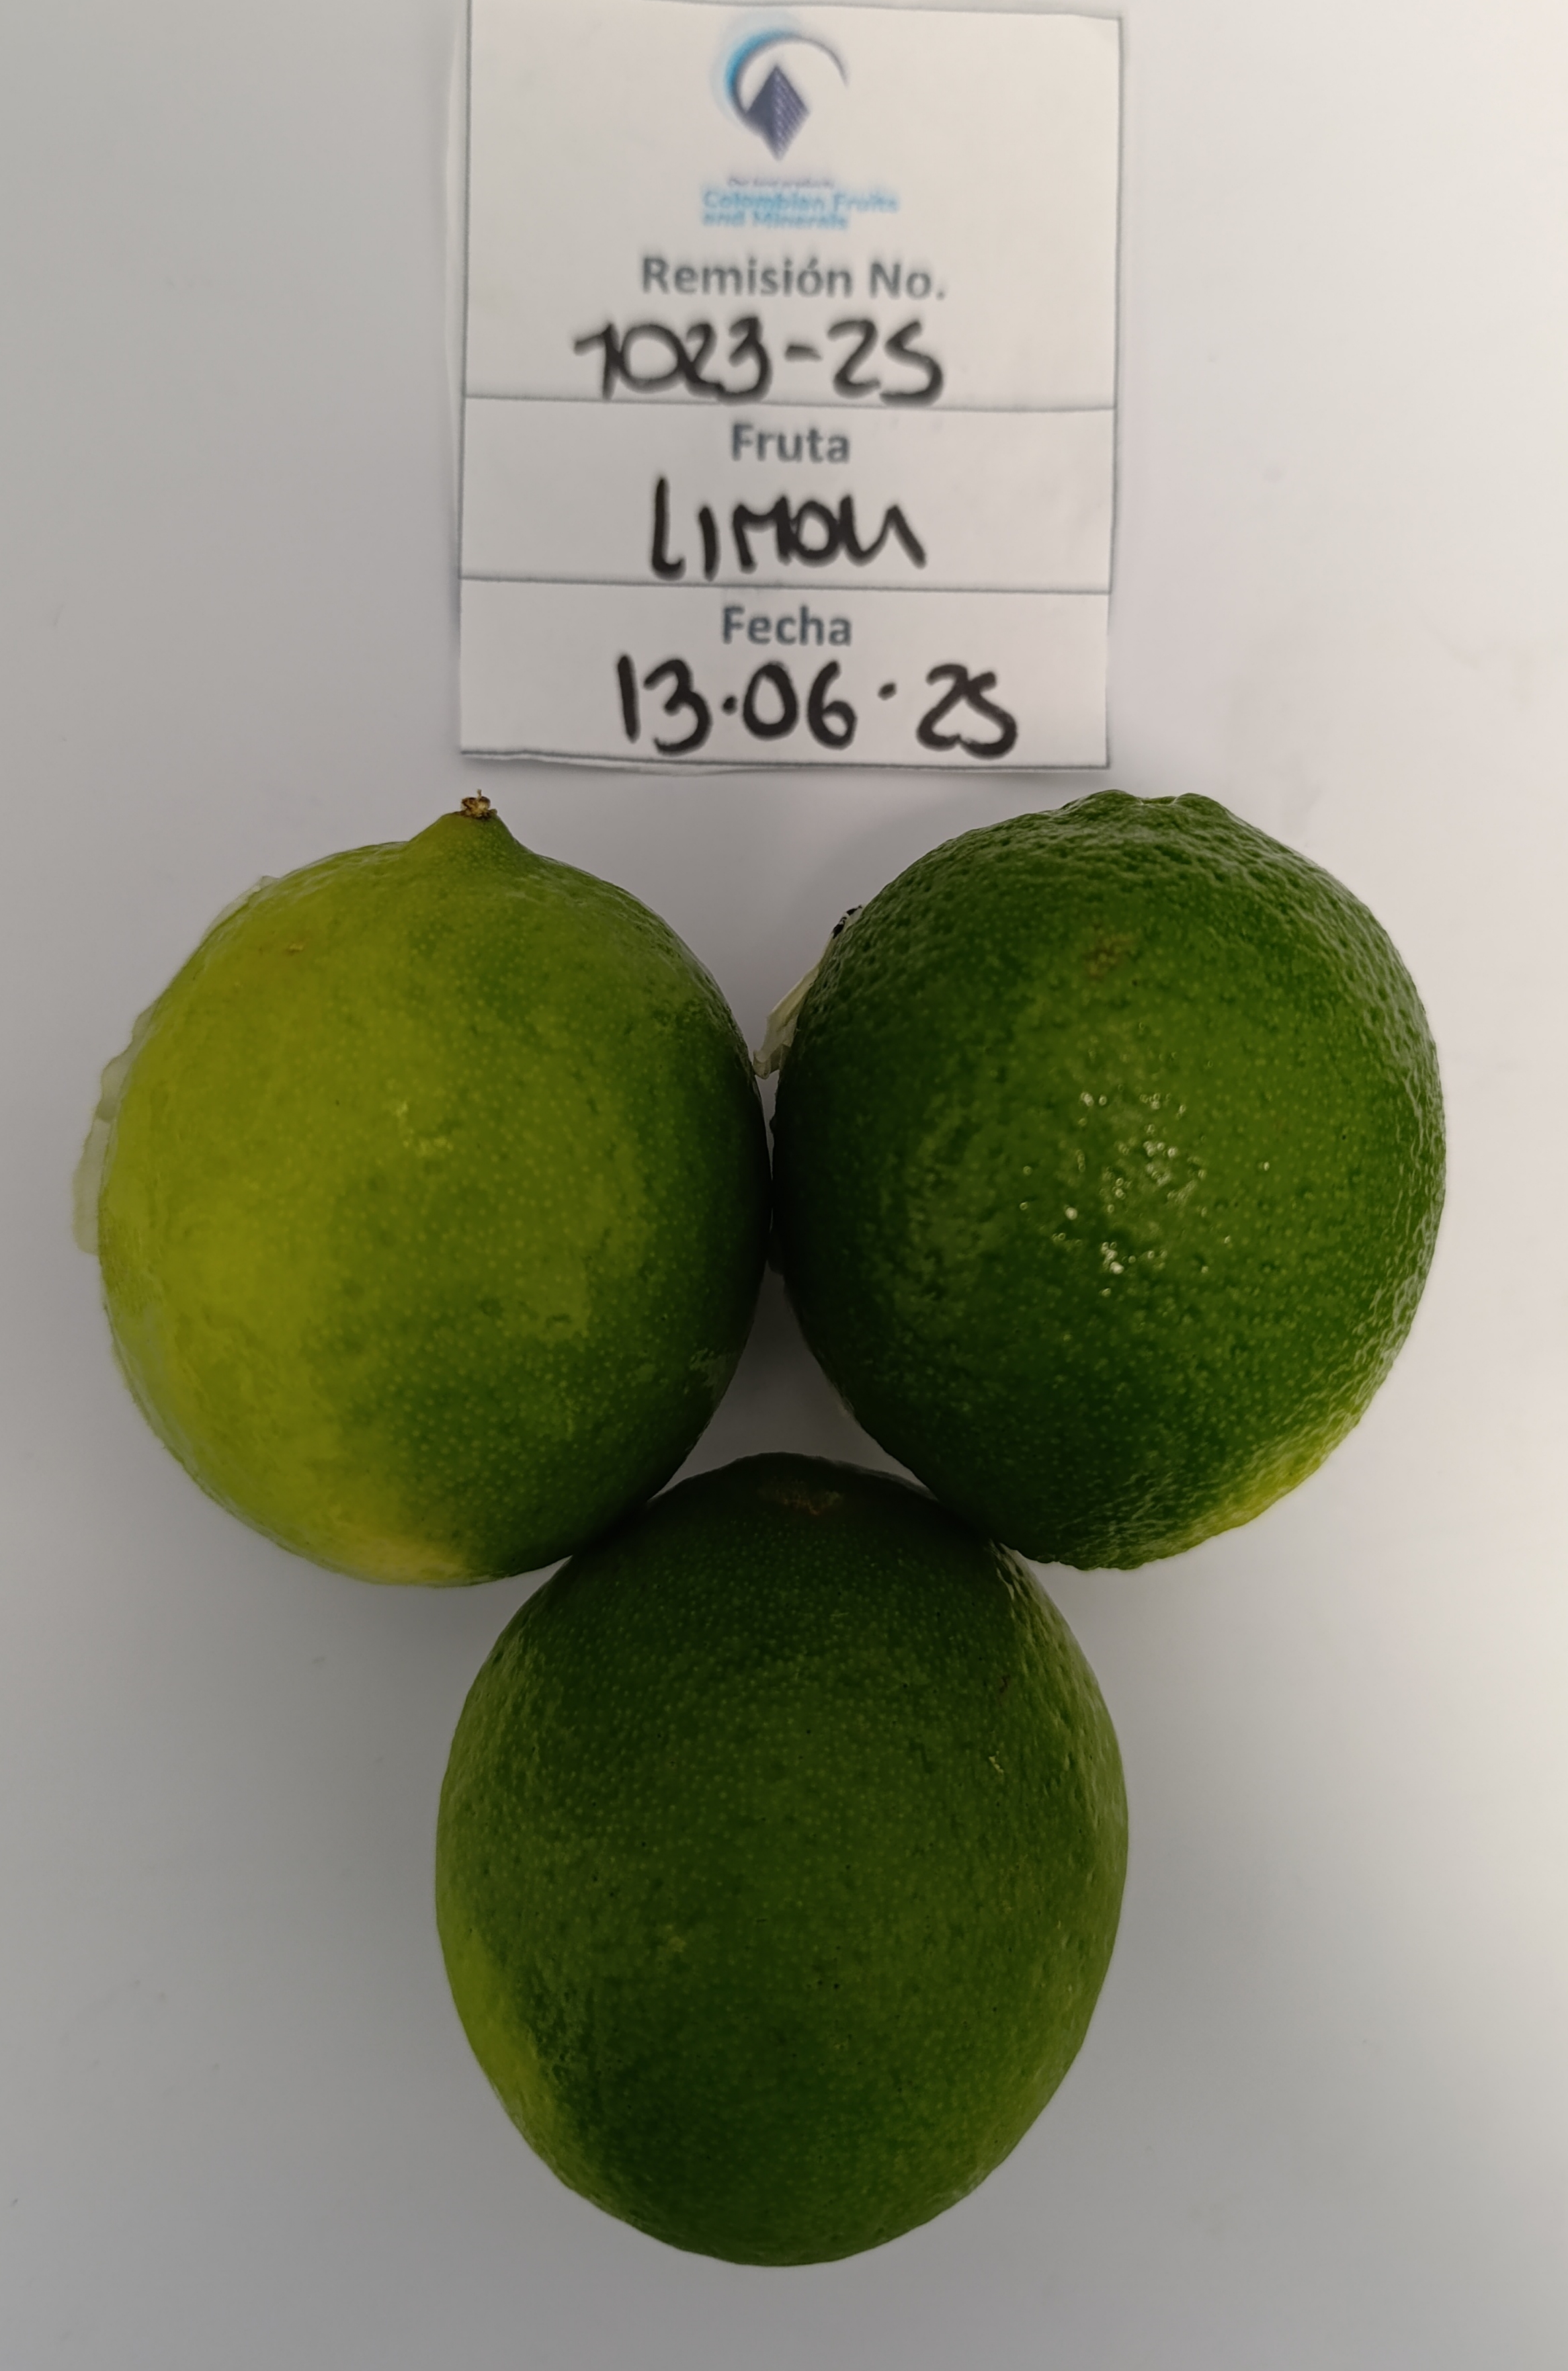 Colombian Fruits
and Minerals
Remisión No.
1023-25
Fruta
LIMON
Fecha
13.06.25